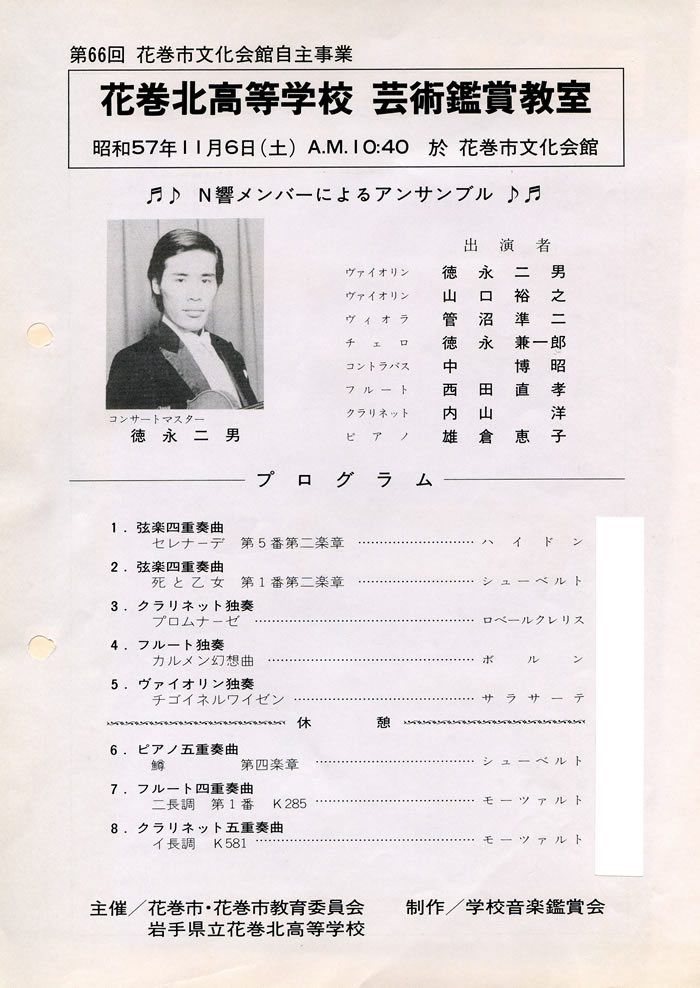 第66回 花巻市文化会館自主事業
花巻北高等学校 芸術鑑賞教室
昭和57年11月6日(土) A.M.10:40 於 花巻市文化会館
♬♪ N響メンバーによるアンサンブル ♪♬
出演者
ヴァイオリン 徳永二男
ヴァイオリン 山口裕之
ヴィオラ 菅沼準二
チェロ 徳永兼一郎
コントラバス 中博昭
フルート 西田直孝
クラリネット 内山洋
ピアノ 雄倉恵子
コンサートマスター
徳永二男
プログラム
1. 弦楽四重奏曲
セレナーデ 第5番第二楽章 ハイドン
2. 弦楽四重奏曲
死と乙女 第1番第二楽章 シューベルト
3. クラリネット独奏
プロムナーゼ ロベールクレリス
4. フルート独奏
カルメン幻想曲 ボルン
5. ヴァイオリン独奏
チゴイネルワイゼン サラサーテ
休憩
6. ピアノ五重奏曲
鱒 第四楽章 シューベルト
7. フルート四重奏曲
ニ長調 第1番 K285 モーツァルト
8. クラリネット五重奏曲
イ長調 K581 モーツァルト
主催/花巻市・花巻市教育委員会 制作/学校音楽鑑賞会
岩手県立花巻北高等学校